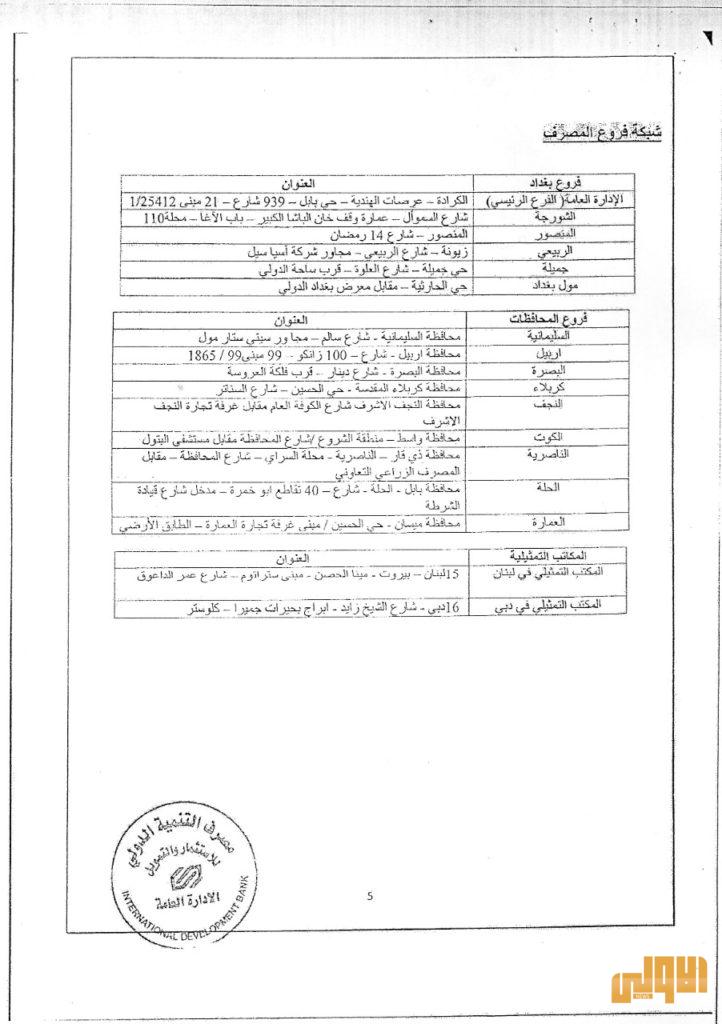 شبكة فروع المصرف
فروع بغداد العنوان
الإدارة العامة( الفرع الرئيسي) الكرادة – عرصات الهندية – حي بابل – 939 شارع – 21 مبنى 1/25412
الشورجة شارع السموأل – عمارة وقف خان الباشا الكبير – باب الأغا – محلة110
المنصور المنصور – شارع 14 رمضان
الربيعي زيونة – شارع الربيعي – مجاور شركة أسيا سيل
جميلة حي جميلة – شارع العلوة – قرب ساحة الدولي
مول بغداد حي الحارثية – مقابل معرض بغداد الدولي
فروع المحافظات العنوان
السليمانية محافظة السليمانية - شارع سالم – مجاور سيتي ستار مول
اربيل محافظة اربيل - شارع – 100 زانكو – 99 مبنى99 / 1865
البصرة محافظة البصرة - شارع دينار – قرب فلكة العروسة
كربلاء محافظة كربلاء المقدسة - حي الحسين – شارع السناتر
النجف محافظة النجف الاشرف شارع الكوفة العام مقابل غرفة تجارة النجف
الاشرف
الكوت محافظة واسط – منطقة الشروع /شارع المحافظة مقابل مستشفى البتول
الناصرية محافظة ذي قار – الناصرية - محلة السراي – شارع المحافظة – مقابل
المصرف الزراعي التعاوني
الحلة محافظة بابل - الحلة - شارع – 40 تقاطع ابو خمرة – مدخل شارع قيادة
الشرطة
العمارة محافظة ميسان - حي الحسين / مبنى غرفة تجارة العمارة – الطابق الأرضي
المكاتب التمثيلية العنوان
المكتب التمثيلي في لبنان 15لبنان – بيروت - مينا الحصن - مبنى ستراتوم – شارع عمر الداعوق
المكتب التمثيلي في دبي 16دبي - شارع الشيخ زايد - ابراج بحيرات جميرا – كلوستر
مصرف التنمية الدولي
للاستثمار والتمويل
الادارة العامة
INTERNATIONAL DEVELOPMENT BANK
5
الاولى
NEWS